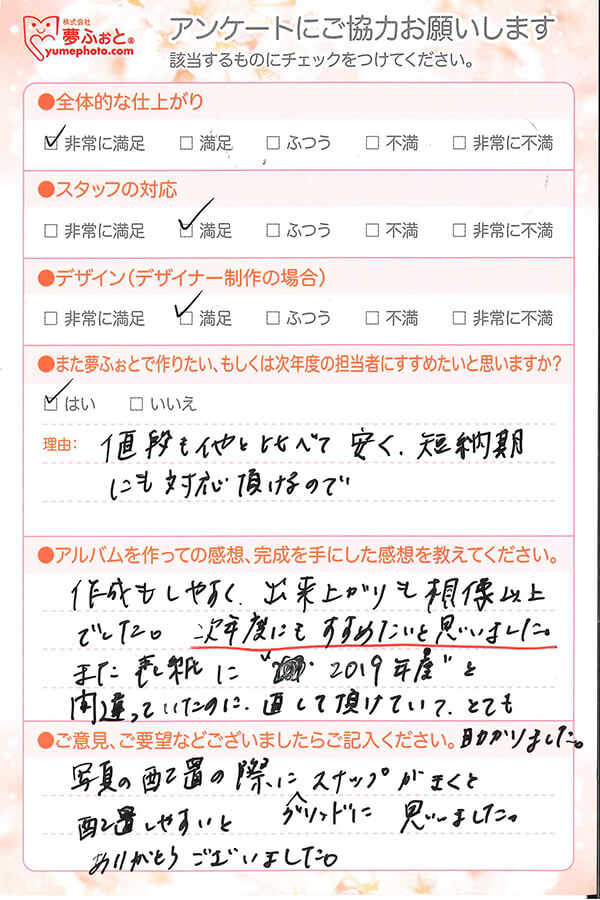 株式会社
夢ふぉと®
yumephoto.com
アンケートにご協力お願いします
該当するものにチェックをつけてください。
●全体的な仕上がり
☑ 非常に満足 □ 満足 □ ふつう □ 不満 □ 非常に不満
●スタッフの対応
□ 非常に満足 ☑ 満足 □ ふつう □ 不満 □ 非常に不満
●デザイン(デザイナー制作の場合)
□ 非常に満足 ☑ 満足 □ ふつう □ 不満 □ 非常に不満
●また夢ふぉとで作りたい、もしくは次年度の担当者にすすめたいと思いますか?
☑ はい □ いいえ
理由: 値段も他と比べて安く、短納期
にも対応頂けるので
●アルバムを作っての感想、完成を手にした感想を教えてください。
作成もしやすく、出来上がりも想像以上
でした。次年度にもすすめたいと思いました。
また表紙に “2019年度” と
間違っていたのに、直して頂けていて、とても
助かりました。
●ご意見、ご要望などございましたらご記入ください。
写真の配置の際にスナップがまくと
配置しやすいと グリッドに 思いました。
ありがとうございました。